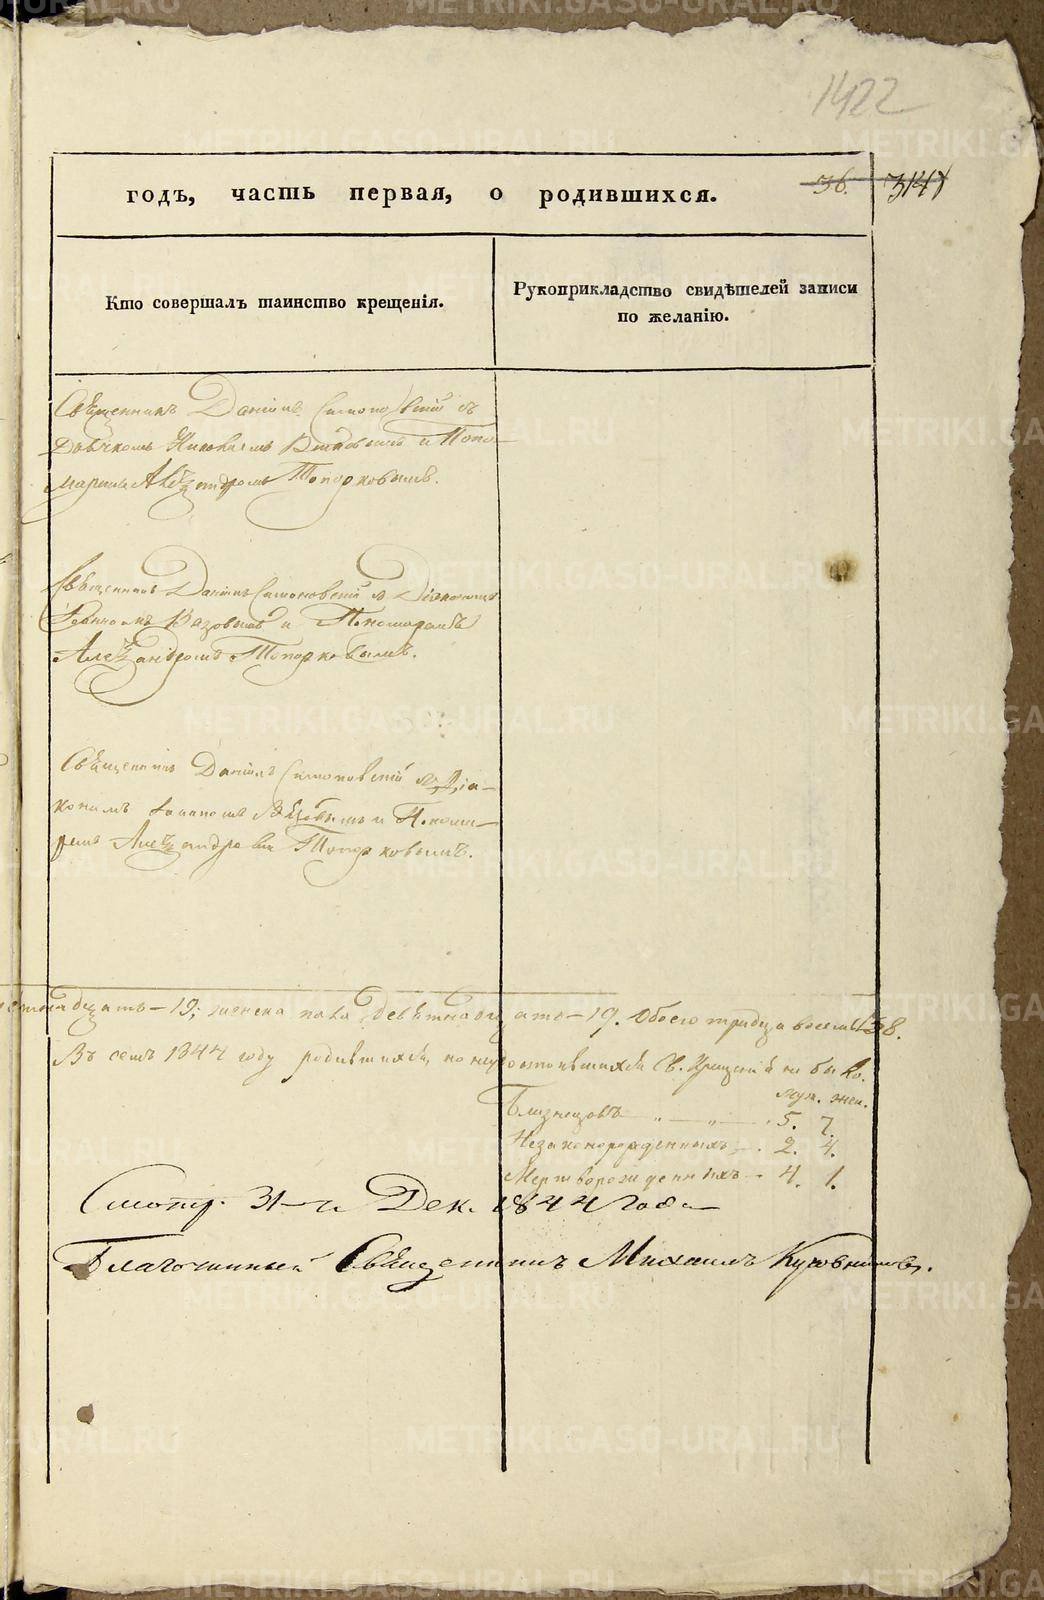 1422
годъ, часть первая, о родившихся. 36. 314
Кто совершалъ таинство крещенія.
Рукоприкладство свидѣтелей записи
по желанію.
Священникъ Даніилъ Симоновскій съ
Дьячкомъ Николаемъ и Поно-
маремъ Алеѯандромъ Топорковымъ.
Священникъ Даніилъ Симоновскій съ Діакономъ
и Пономаремъ
Алеѯандромъ Топорковымъ.
Священникъ Даніилъ Симоновскій съ Діа-
кономъ и Понома-
ремъ Алеѯандромъ Топорковымъ.
19; женска пола Девятнадцать - 19. Обоего тридцать восемь 38.
Въ семъ 1844 году родившихся, но неудостоившихся Св. Крещенія не было.
муж. жен.
Близнецовъ - 5. 7.
Незаконорожденныхъ - 2. 4.
Мертворожденныхъ - 4. 1.
Смотр. 31-го Дек. 1844 Года
Благочинный Священникъ Михаилъ
METRIKI.GASO-URAL.RU